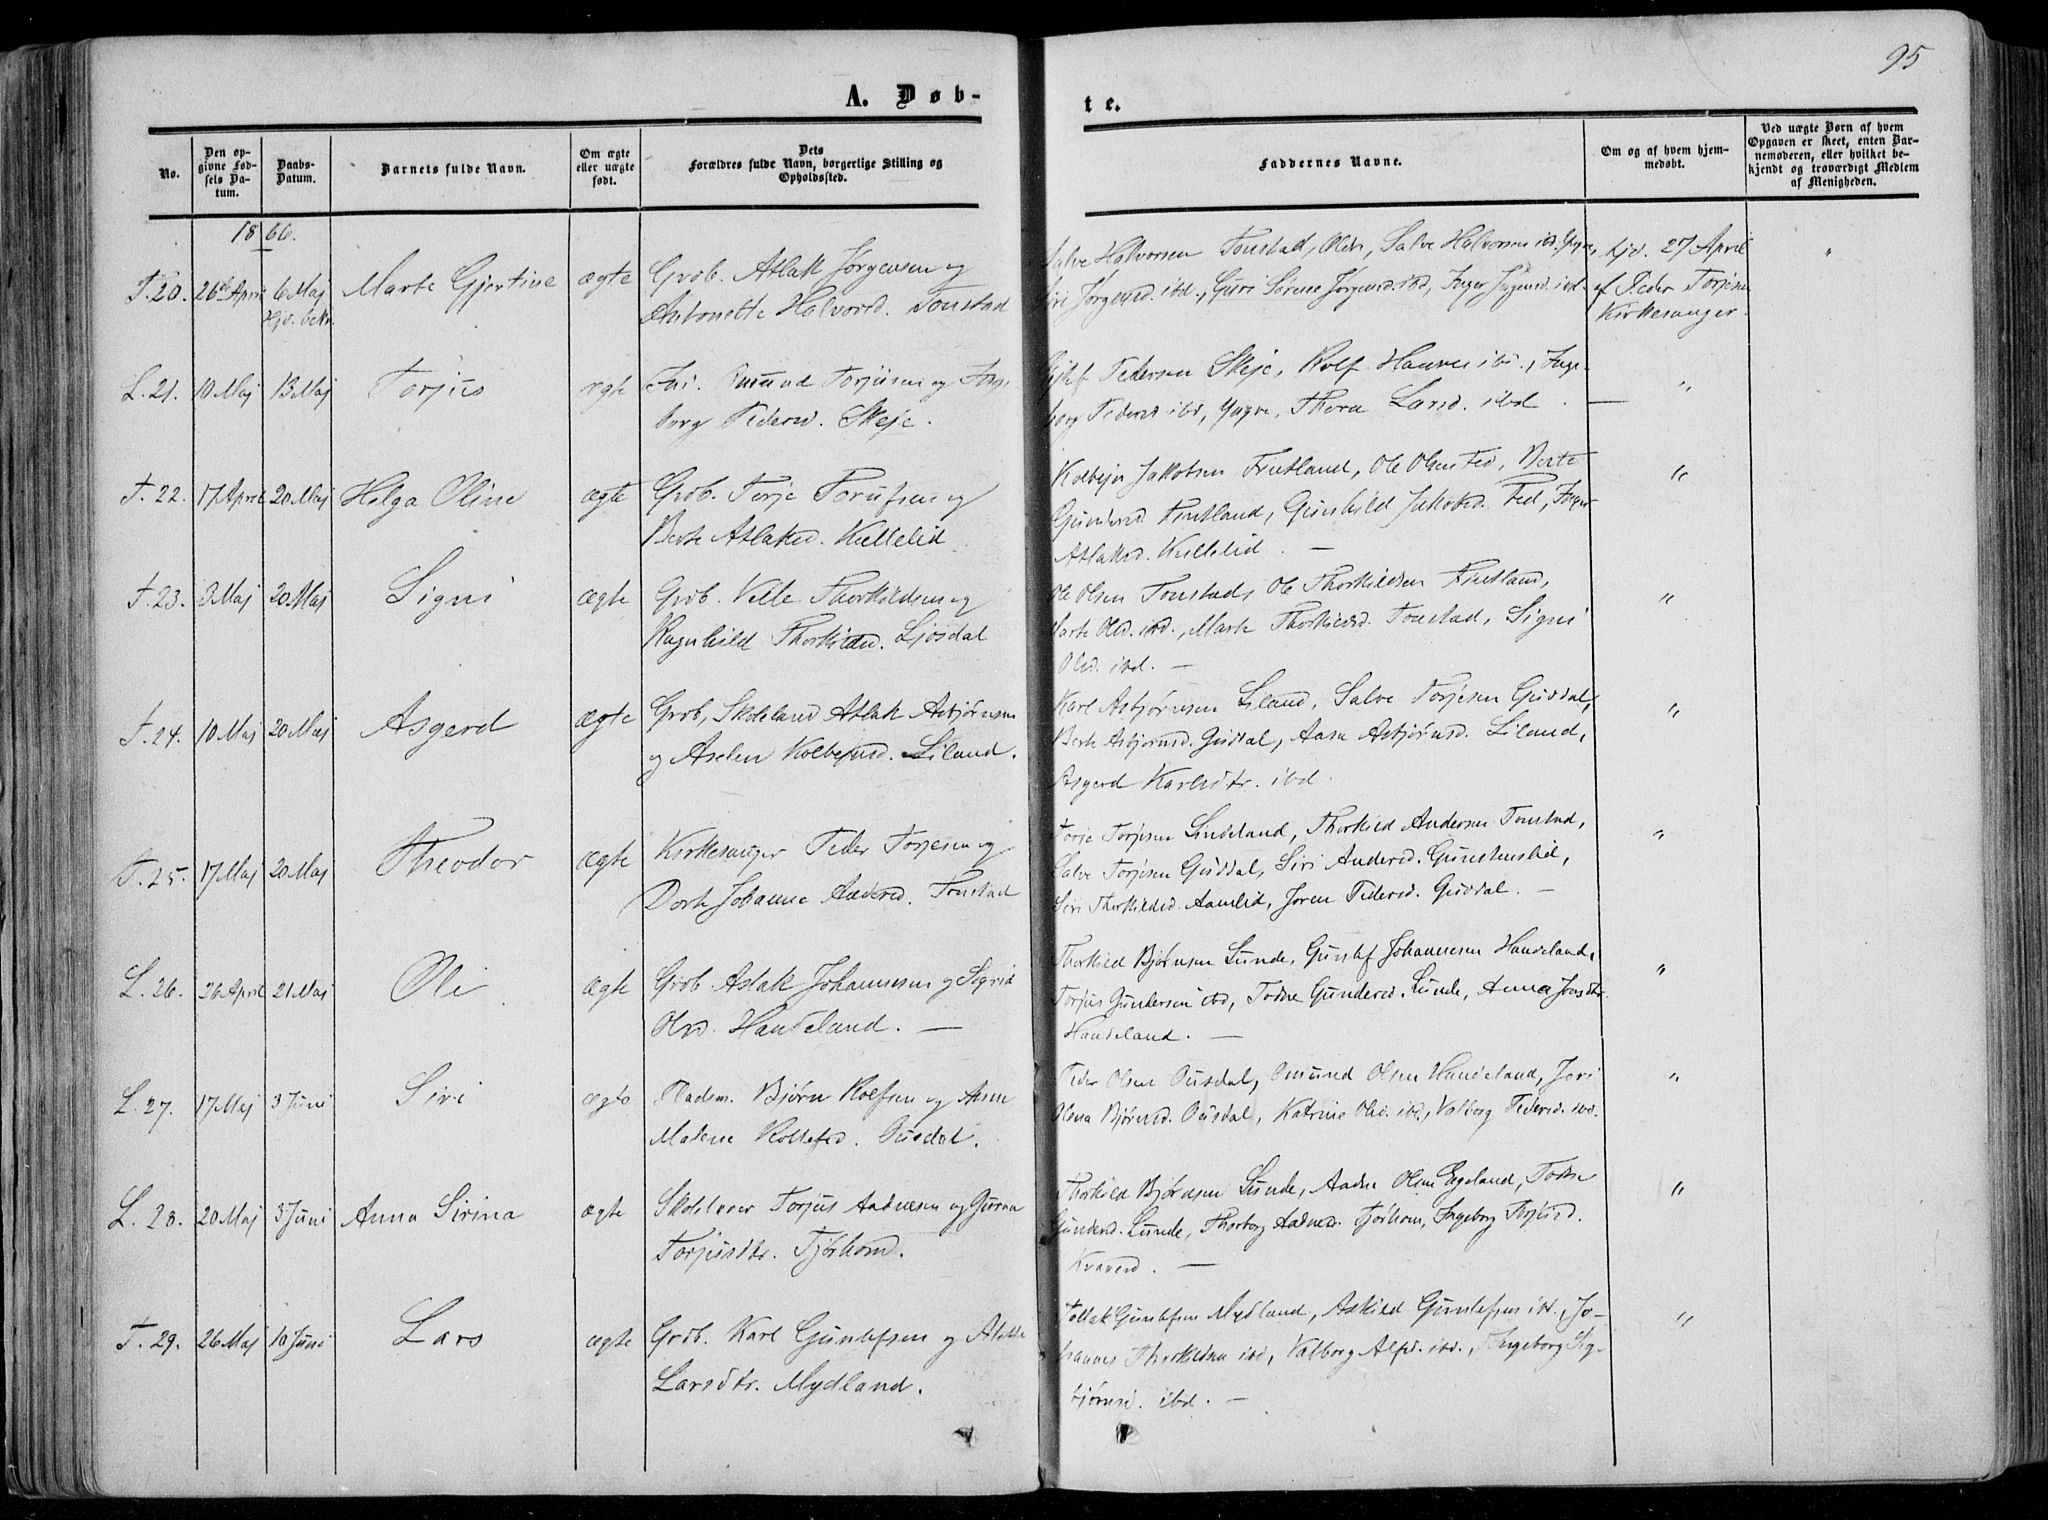 95
A. Døb-
te.
No.
Den op-
givne Fød-
sels Da-
tum.
Daabs-
Datum.
Barnets fulde Navn.
Om ægte
eller uægte
født.
Dets
Forældres fulde Navn, borgerlige Stilling og
Opholdssted.
Faddernes Navne.
Om og af hvem hjem-
medøbt.
Ved uægte Børn af hvem
Opgaven er skeet, enten Bar-
nemoderen, eller hvilket be-
kjendt og troværdigt Medlem
af Menigheden.
1866.
T. 20. 26de April 6 Maj Marte Gjertine ægte Grdb. Atlak Jørgensen og
Hjd. bekr. Antonette Halvorsd. Tonstad
Salve Halvorsen Tonstad, Salve Halvorsen ibd.
Siri Jørgensd. ibd., Guri Sirine Jørgensd. ibd, Inger ibd.
hjd. 27 April
af Peder Torjesen
Kirkesanger.
L. 21. 10 Maj 13 Maj Torjus ægte Omund Torjusen og Inge
borg Pedersd. Skeje.
Pedersen Skeje, Rolf ibd., Inge-
borg Pedersd ibd, Yngve, Thora Larsd. ibd.
T. 22. 17 April 20 Maj Helga Oline ægte Grdb. Torje og
Berte Atlaksd. Kvellelid
Kolbejn Jakobsen Fintland, Ole Olsen Fed, Berte
Gundersd Fintland, Gunhild Jakobsd. Fed, Inger
Atlaksd. Kvellelid. —
T. 23. 3 Maj 20 Maj Signi ægte Grdb. Thorkildsen og
Ragnhild Thorkildsd. Ljosdal
Ole Olsen Tonstad, Ole Thorkildsen Fintland,
Marte Olsd. ibd., Marte Thorkildsd. Tonstad, Signi
Olsd. ibd. —
T. 24. 10 Maj 20 Maj Asgerd ægte Grdb, Atlak Asbjørnsen
og Aselen Kolbejnsd. Liland.
Karl Asbjørnsen Liland, Salve Torjesen Guddal,
Berte Asbjørnsd. Guddal, Aasa Asbjørnsd. Liland,
Asgerd Karlsdtr. ibd.
T. 25. 17 Maj 20 Maj Theodor ægte Kirkesanger Peder Torjesen og
Dorte Johanne Andersd. Tonstad
Torje Torjesen Lindeland, Thorkild Andersen Tonstad,
Salve Torjesen Guddal, Siri Andersd.
Siri Thorkildsd. Aamlid, Joren Pedersd. Guddal. —
L. 26. 26 April 21 Maj Oli ægte Grdb. Aslak Johannesen og Sigrid
Olsd. Handeland. —
Thorkild Bjørnsen Lunde, Gunlef Johannesen Handeland,
Torjus Gundersen ibd, Todne Gundersd. Lunde, Anna Jonsdtr.
Handeland. —
L. 27. 17 Maj 3 Juni Siri ægte Pladsm. Bjørn Rolfsen og Anne
Malene Ousdal.
Peder Olsen Ousdal, Omund Olsen Handeland, Jori
Olena Bjørnsd. Ousdal, Katrine Olsd. ibd, Valborg Pedersd. ibd.
L. 28. 20 Maj 3 Juni Anna Sirina ægte Skolelærer Torjus Aadnesen og
Torjusdtr. Tjørhom.
Thorkild Bjørnsen Lunde, Aadne Olsen Egeland, Todne
Gundersd. Lunde, Thorborg Aadnesd. Tjørhom, Ingeborg Torjusd.
Kvæven. —
T. 29. 26 Maj 10 Juni Lars ægte Grdb. Karl Gunlefsen og
Larsdtr. Mydland.
Tollak Gunlefsen Mydland, Askild Gunlefsen ibd., Jo-
hannes Thorkildsen ibd, Valborg ibd., Ingeborg Sig-
bjørnsd. ibd. —